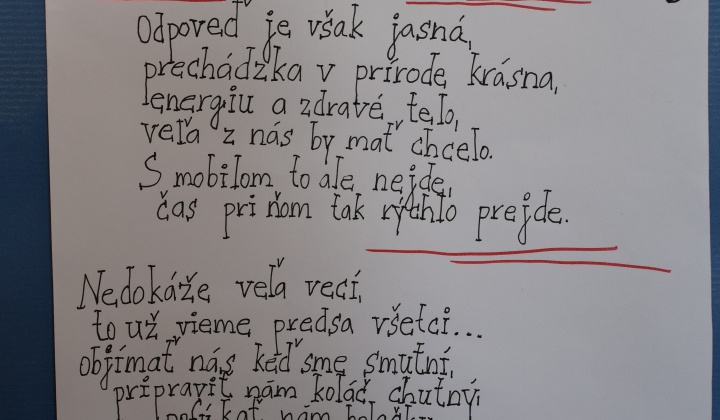 Odpoveď je však jasná,
prechádzka v prírode krásna,
energiu a zdravé telo,
veľa z nás by mať chcelo.
S mobilom to ale nejde,
čas pri ňom tak rýchlo prejde.
Nedokáže veľa vecí,
to už vieme predsa všetci...
objímať nás keď sme smutní,
pripraviť nám koláč chutný,
nám